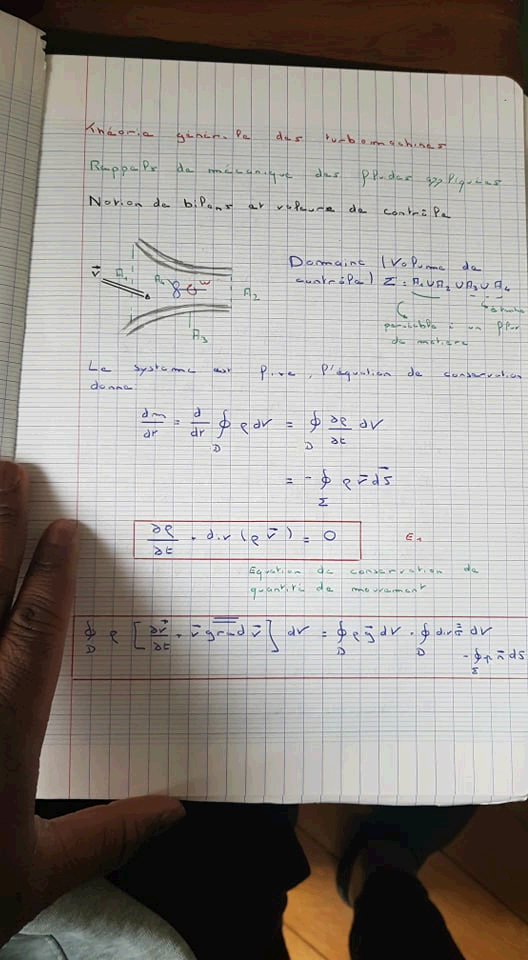 Théorie générale des turbomachines
Rappels de mécanique des fluides appliquées
Notion de bilans et volume de contrôle
Domaine (Volume de
contrôle) Σ : A₁∪A₂∪A₃∪A₄
v⃗ A₁ A₄ ω A₂
A₃
perméable à un flux
de matière
étanche
Le système est fixe, l'équation de conservation
donne
dm/dt = d/dt ∮_D ρ dV = ∮_D ∂ρ/∂t dV
= - ∮_Σ ρ v⃗ ds⃗
∂ρ/∂t + div (ρ v⃗) = 0 E₁
Equation de conservation de
quantité de mouvement
∮_D ρ [∂v⃗/∂t + v⃗ grad v⃗] dV = ∮_D ρ g⃗ dV + ∮_D div dV
- ∮_Σ p n⃗ ds